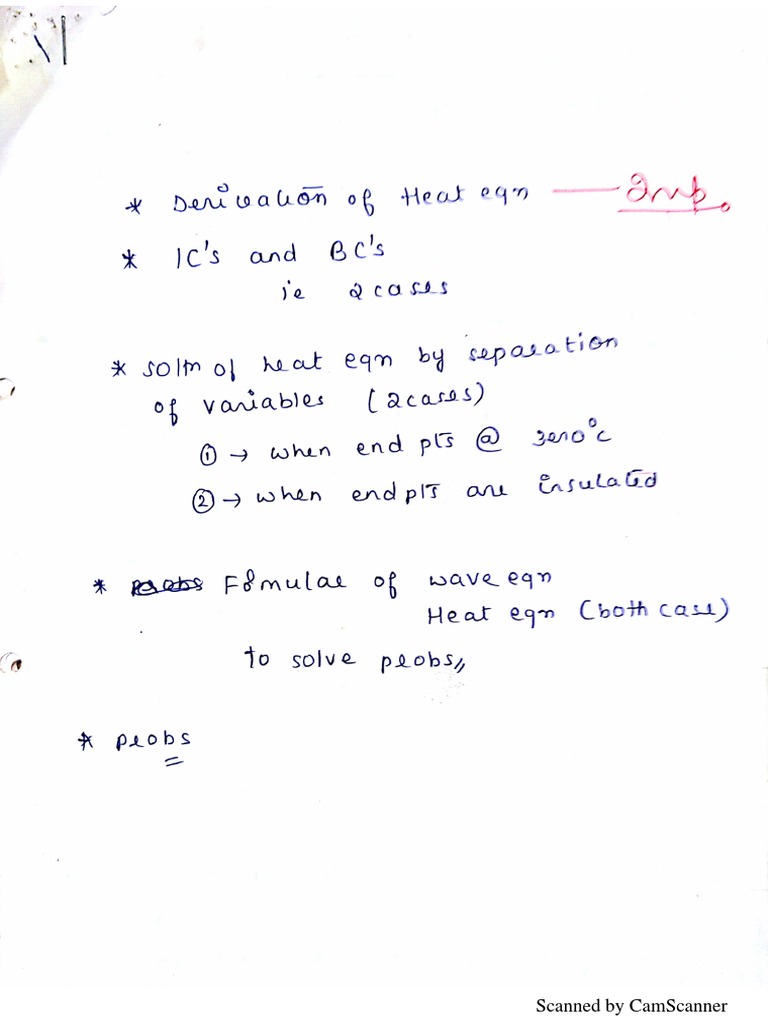 * Derivation of Heat eqn — Imp.
* IC's and BC's
ie 2 cases
* soln of heat eqn by separation
of variables (2 cases)
① → when end pts @ zero°c
② → when end pts are insulated
* probs Formulae of wave eqn
Heat eqn (both case)
to solve probs,,
* probs
Scanned by CamScanner